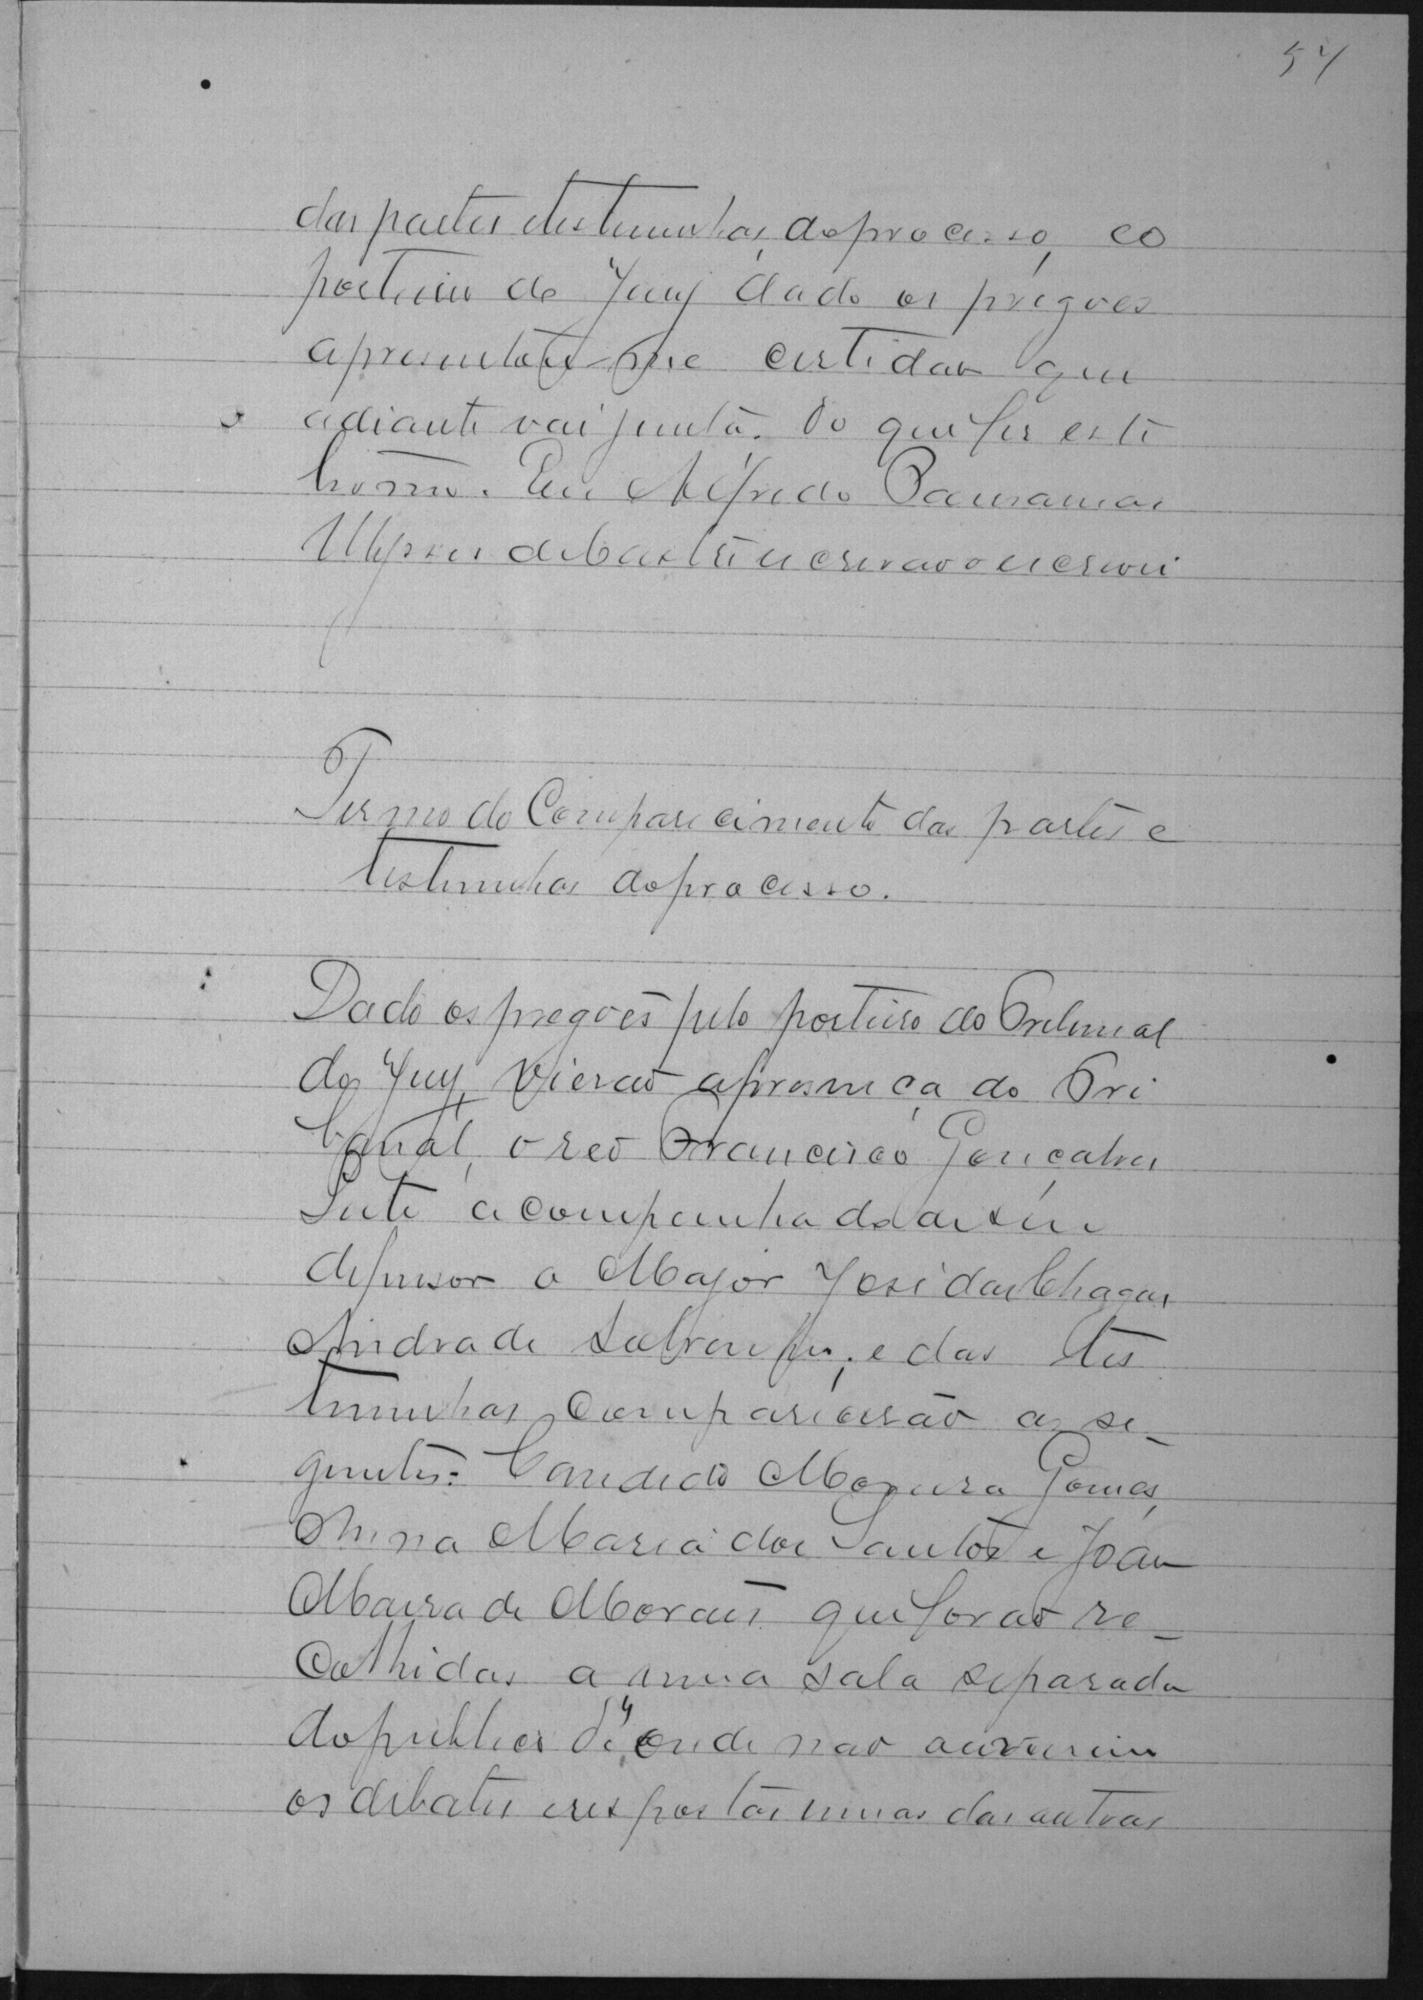 54
das partes e testemunhas do processo, e o
porteiro do Jury dado os pregoes
apresentou-me certidão que
adiante vai junta. Do que fis este
termo. Eu Alfredo
de Castro escrivão o escrevi
Termo do Comparecimento das partes e
testimunhas do processo.
Dado os pregoes pelo porteiro do Tribunal
do Jury, vierão a presença do Tri
bunal, o reo Francisco Gonçalves
Leite acompanhado de seu
defensor o Major José das Chagas
Andrade Sobrinho; e das tes
timunhas comparecerão as se-
guintes: Candido Gomes,
Anna Maria dos Santos e João
de Moraes que forão re-
colhidas a uma sala separada
do publico d'onde não ouvissem
os debates e respostas umas das outras